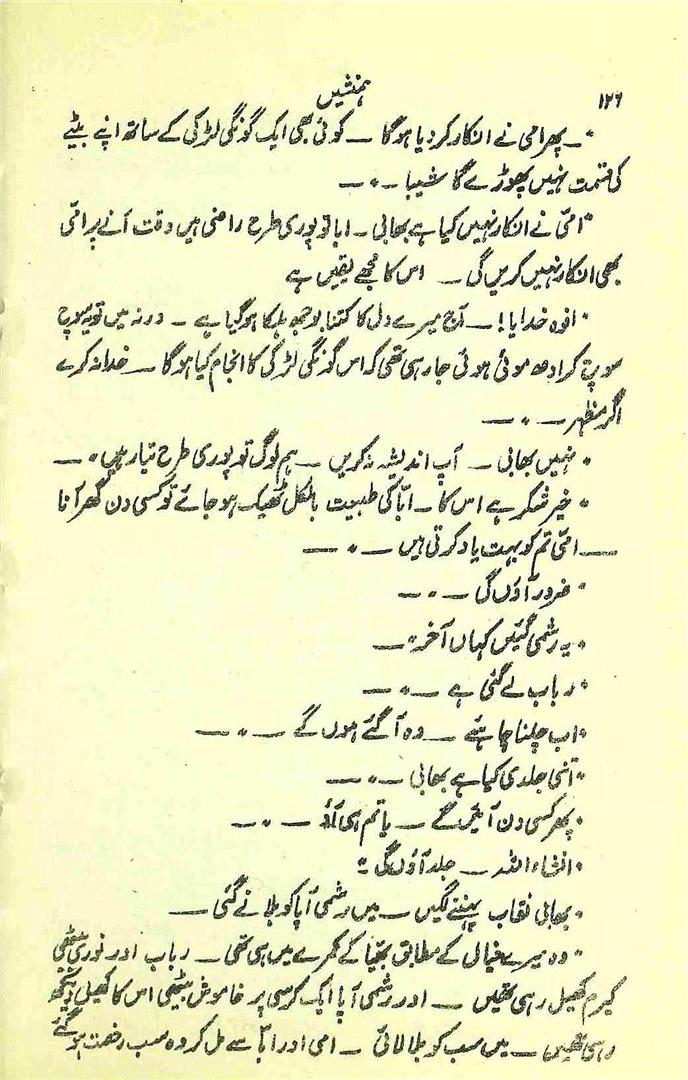 ۱۲۶
ہمنشیں
"۔ پھر امی نے انکار کر دیا ہوگا — کوئی بھی ایک گونگی لڑکی کے ساتھ اپنے بیٹے
کی قسمت نہیں پھوڑے گا شیبا —"—
"امّی نے انکار نہیں کیا ہے بھابی — ابا تو پوری طرح راضی ہیں وقت آنے پر امّی
بھی انکار نہیں کریں گی — اس کا مجھے یقین ہے
"افوہ خدایا! — آج میرے دل کا کتنا بوجھ ہلکا ہو گیا ہے — ورنہ میں تو یہ سوچ
سوچ کر ادھ موئی ہوئی جا رہی تھی کہ اس گونگی لڑکی کا انجام کیا ہوگا — خدا نہ کرے
اگر مظہر —"—
"نہیں بھابی — آپ اندیشہ نہ کریں — ہم لوگ تو پوری طرح تیار ہیں" —
"خیر شکر ہے اس کا — ابّا کی طبیعت بالکل ٹھیک ہو جائے تو کسی دن گھر آنا
— امّی تم کو بہت یاد کرتی ہیں —"—
"ضرور آؤں گی —"—
"یہ رشمی گئیں کہاں آخر" —
"رباب لے گئی ہے —"—
"اب چلنا چاہئے — وہ آ گئے ہوں گے —"—
"اتنی جلدی کیا ہے بھابی —"—
"پھر کسی دن آئیں گے — یا تم ہی آؤ —"—
"انشاء اللہ — جلد آؤں گی"
"بھابی نقاب پہننے لگیں — میں رشمی آپا کو بلانے گئی —
"وہ میرے خیال کے مطابق بھیّا کے کمرے میں ہی تھی — رباب اور نوری بیٹھی
کیرم کھیل رہی تھیں — اور رشمی آپا ایک کرسی پر خاموش بیٹھی اس کا کھیل دیکھ
رہی تھیں — میں سب کو بلا لائی — امی اور ابّا سے مل کر وہ سب رخصت ہو گئے